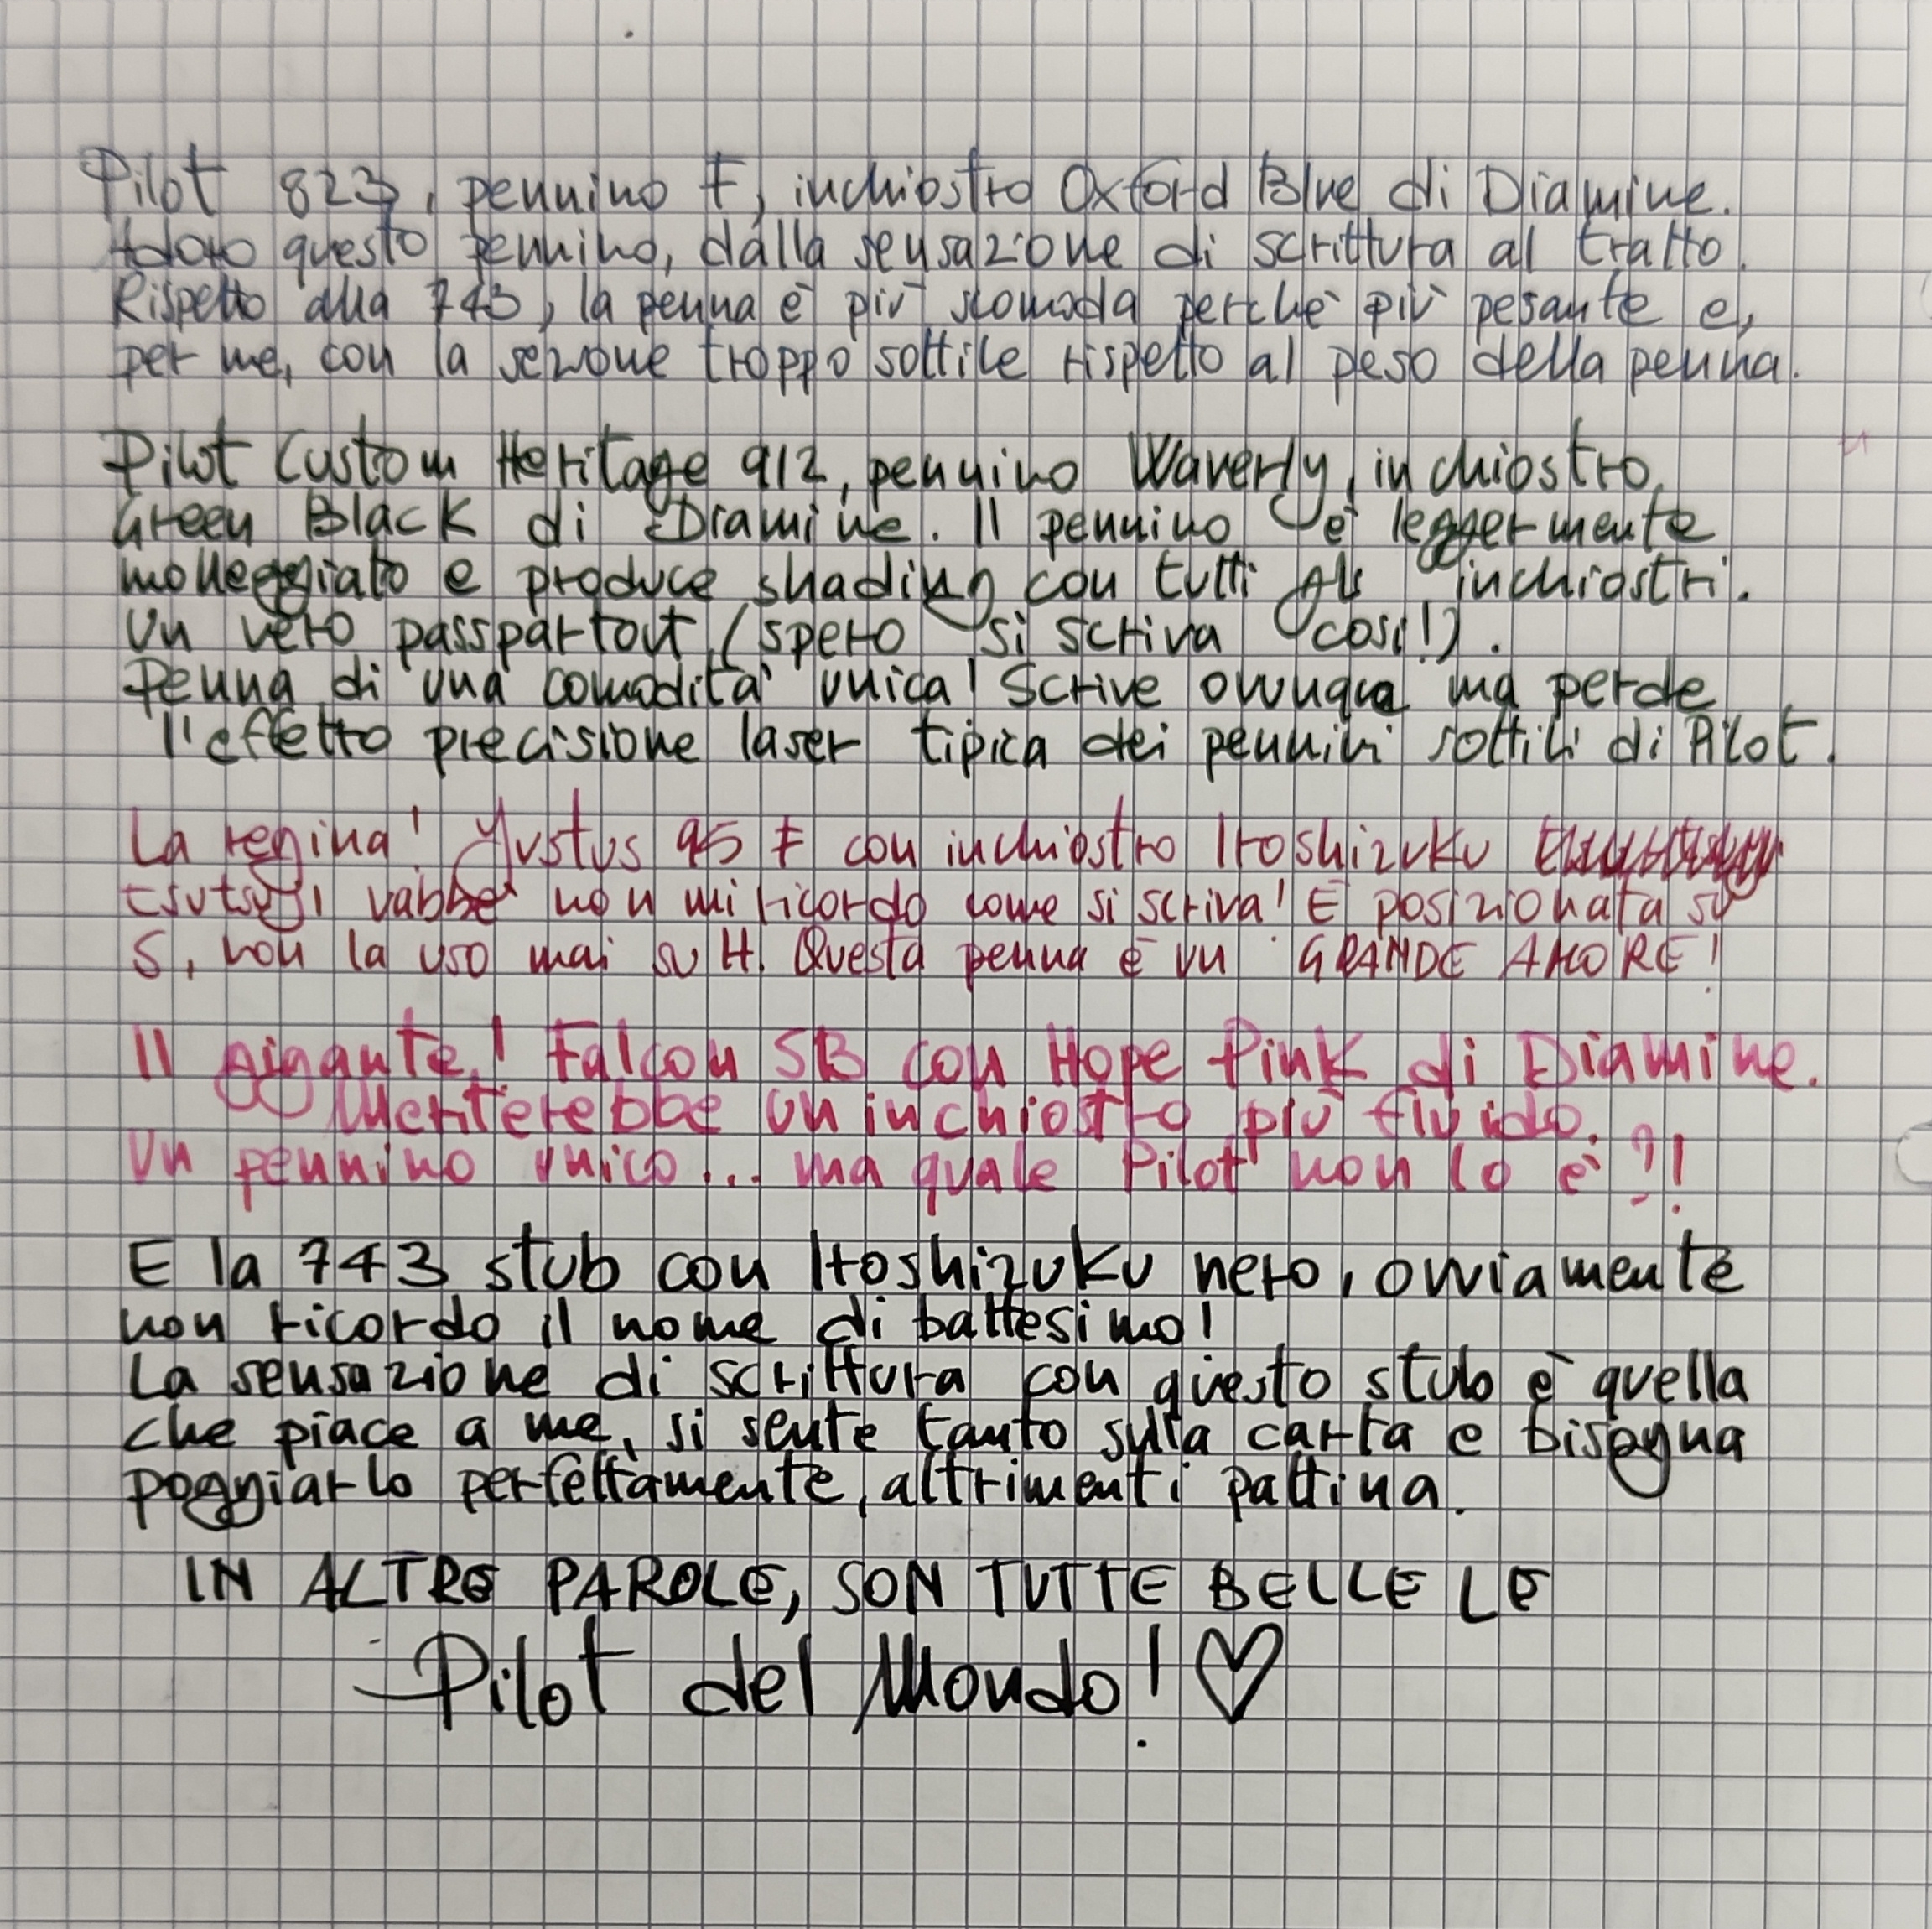 Pilot 823, pennino F, inchiostro Oxford Blue di Diamine.
Adoro questo pennino, dalla sensazione di scrittura al tratto.
Rispetto alla 743, la penna è più scomoda perché più pesante e,
per me, con la sezione troppo sottile rispetto al peso della penna.
Pilot Custom Heritage 912, pennino Waverly, inchiostro
Green Black di Diamine. Il pennino è leggermente
molleggiato e produce shading con tutti gli inchiostri.
Un vero passpartout (spero si scriva così!).
Penna di una comodità unica! Scrive ovunque ma perde
l'effetto precisione laser tipica dei pennini sottili di Pilot.
La regina! Justus 95 F con inchiostro Iroshizuku
tsutsuji vabbè non mi ricordo come si scriva! È posizionata su
S, non la uso mai su H. Questa penna è un GRANDE AMORE!
Il gigante! Falcon SB con Hope Pink di Diamine.
Meriterebbe un inchiostro più fluido.
Un pennino unico... ma quale Pilot non lo è?!
E la 743 stub con Iroshizuku nero, ovviamente
non ricordo il nome di battesimo!
La sensazione di scrittura con questo stub è quella
che piace a me, si sente tanto sulla carta e bisogna
poggiarlo perfettamente, altrimenti pattina.
IN ALTRE PAROLE, SON TUTTE BELLE LE
Pilot del Mondo! ♡